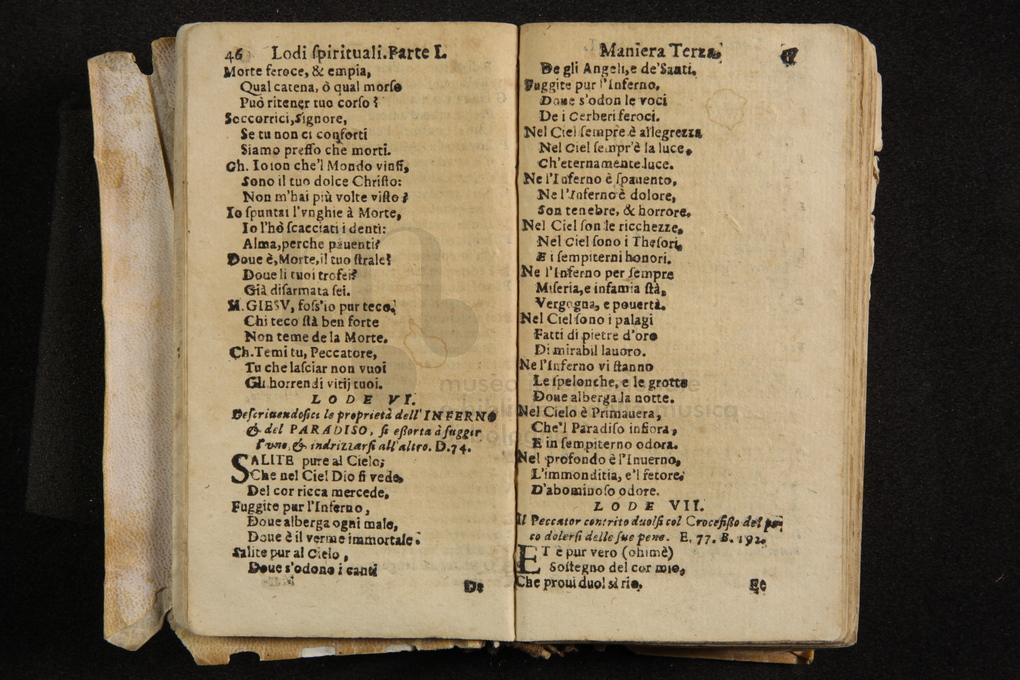 46 Lodi ſpirituali. Parte I.
Morte feroce, & empia,
Qual catena, ò qual morſo
Può ritener tuo corſo?
Soccorrici, Signore,
Se tu non ci conforti
Siamo preſſo che morti.
Ch. Io ſon che'l Mondo vinſi,
Sono il tuo dolce Chriſto:
Non m'hai più volte viſto?
Io ſpuntai l'vnghie à Morte,
Io l'hò ſcacciati i denti:
Alma, perche pauenti?
Doue è, Morte, il tuo ſtrale?
Doue li tuoi trofei?
Già diſarmata ſei.
M. GIESV, foſs'io pur teco,
Chi teco ſtà ben forte
Non teme de la Morte.
Ch. Temi tu, Peccatore,
Tu che laſciar non vuoi
Gli horrendi vitij tuoi.
LODE VI.
Deſcriuendoſici le proprietà dell'INFERNO
& del PARADISO, ſi eſſorta à fuggir
l'vno, & indrizzarſi all'altro. D. 74.
SALITE pure al Cielo,
Che nel Ciel Dio ſi vede,
Del cor ricca mercede,
Fuggite pur l'Inferno,
Doue alberga ogni male,
Doue è il verme immortale.
Salite pur al Cielo,
Doue s'odono i canti
De
Maniera Terza.
De gli Angeli, e de' Santi.
Fuggite pur l'Inferno,
Doue s'odon le voci
De i Cerberi feroci.
Nel Ciel ſempre è allegrezza
Nel Ciel ſempr'è la luce,
Ch'eternamente luce.
Ne l'Inferno è ſpauento,
Ne l'Inferno è dolore,
Son tenebre, & horrore.
Nel Ciel ſon le ricchezze,
Nel Ciel ſono i Theſori,
E i ſempiterni honori.
Ne l'Inferno per ſempre
Miſeria, e infamia ſtà,
Vergogna, e pouertà.
Nel Ciel ſono i palagi
Fatti di pietre d'oro
Di mirabil lauoro.
Ne l'Inferno vi ſtanno
Le ſpelonche, e le grotte
Doue alberga la notte.
Nel Cielo è Primauera,
Che'l Paradiſo infiora,
E in ſempiterno odora.
Nel profondo è l'Inuerno,
L'immonditia, e'l fetore,
D'abominoſo odore.
LODE VII.
Il Peccator contrito duolſi col Crocefiſſo del po-
co dolerſi delle ſue pene. E. 77. B. 192.
ET è pur vero (ohimè)
Soſtegno del cor mio,
Che proui duol sì rio,
Ec